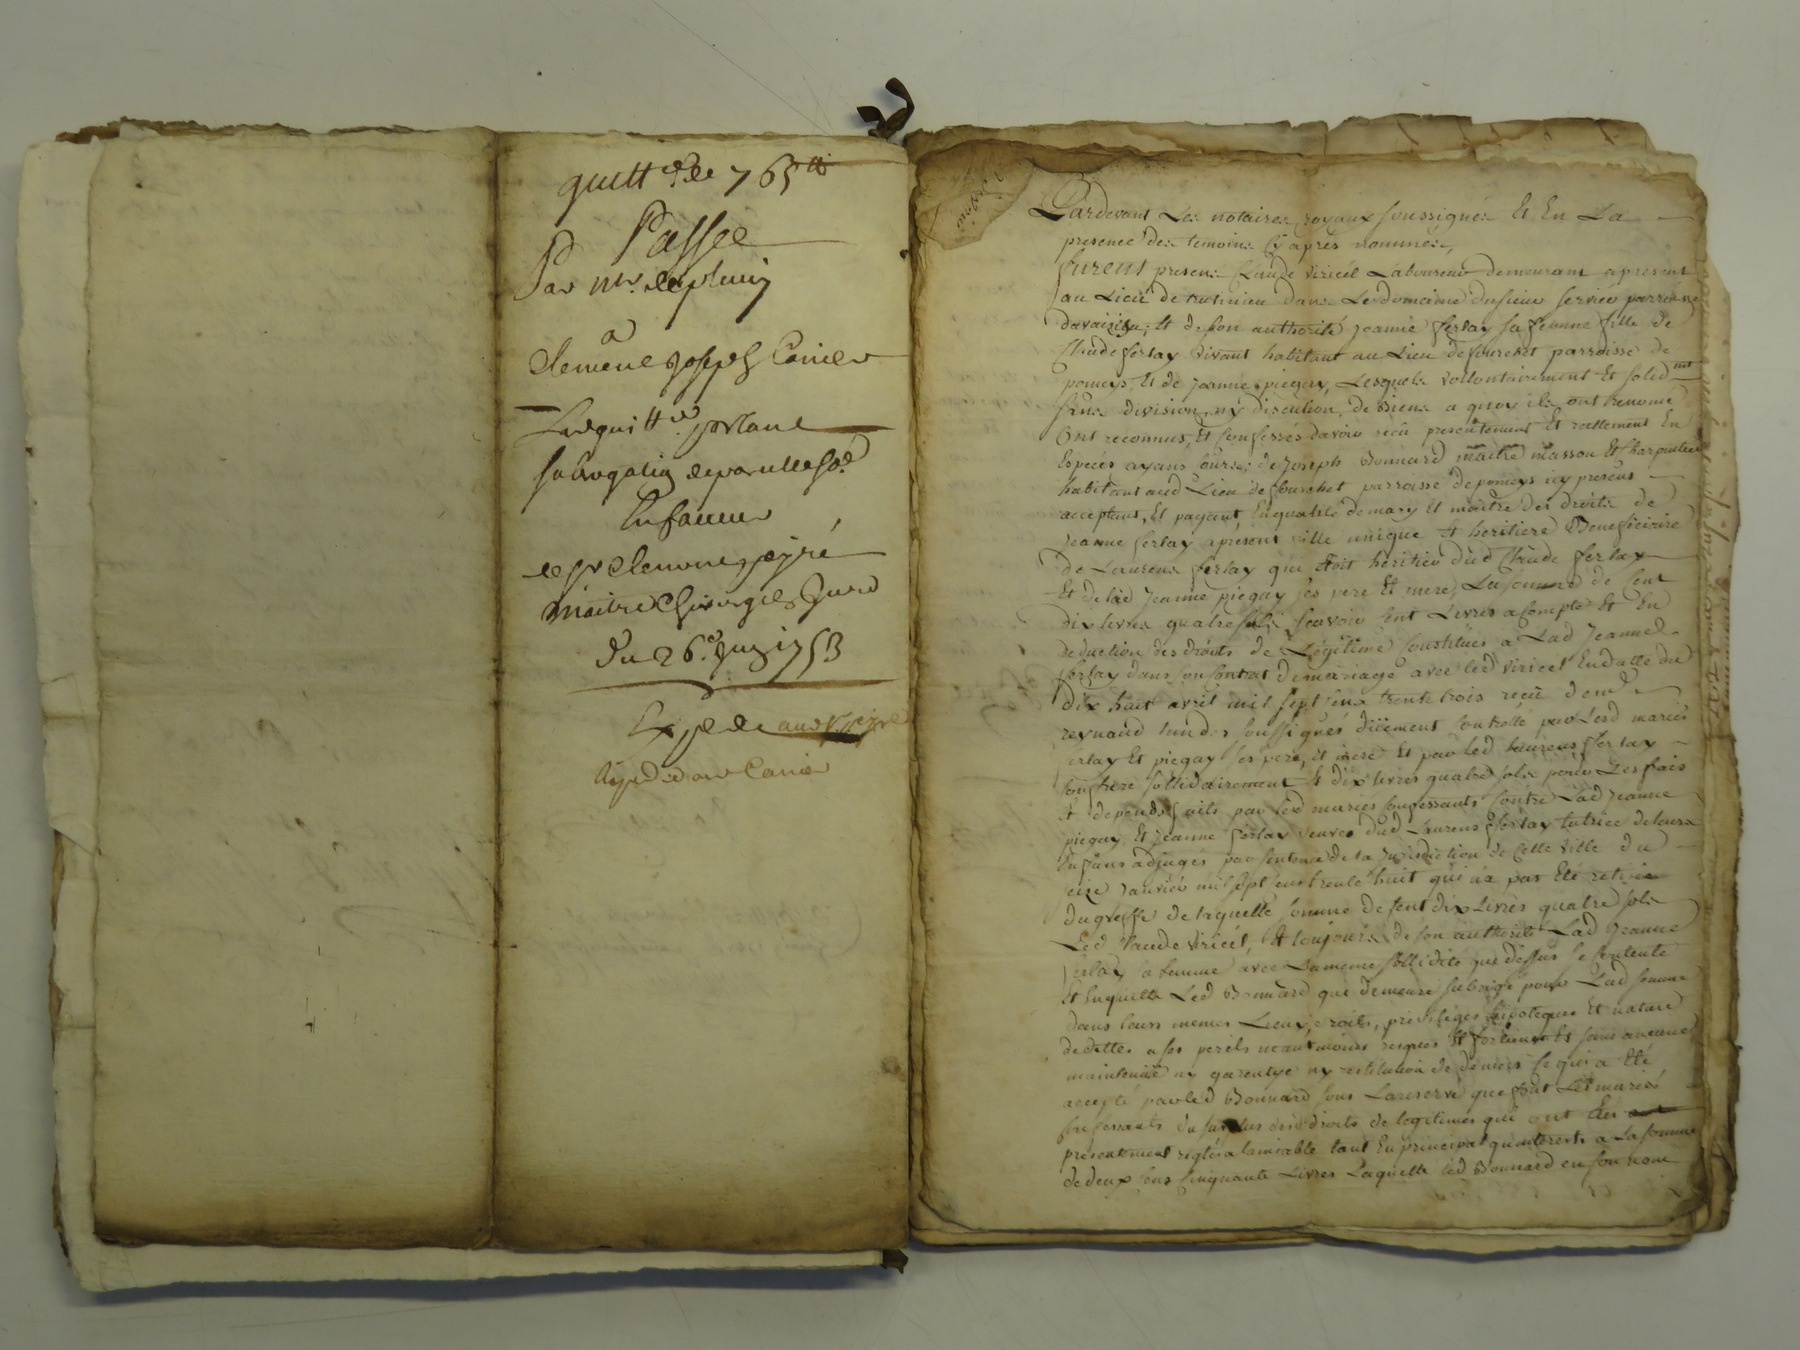 quitt.ce de 765 tt
Passée
Par mr.
a
Clemence Joseph
Lad quitt.ce portant
subrogation
Enfaveur
de sr Clemence peyré
maitre Chirurgien Juré
du 26.e 1753
Exped
Expedié
Pardevant Les notaires royaux soussignés Et En La
presence des temoins Cy apres nommés,
furent presens Claude viricel Laboureur demeurant apresent
au Lieu de dans Le domaine du sieur parroisse
davaizieu; Et de son authorité Jeanne ferlay sa femme fille de
Claude ferlay vivant habitant au Lieu de fourchet parroisse de
pomeys, Et de Jeanne piegay, Lesquels vollontairement Et solid.mt
sans division, ny discution, de biens a quoy ils ont renoncé
Ont reconnus, Et Confessés davoir reçu presentement Et reellement En
Especes ayans Cours; de Joseph Bonnard maitre masson Et Charpentier
habitant aud Lieu de fourchet parroisse de pomeys icy present
acceptant, Et payant, En qualité de mary Et maitre des droits de
Jeanne ferlay apresent fille unique Et heritiere Beneficiaire
de Laurens ferlay qui Etoit héritier dud Claude ferlay
Et de lad Jeanne piegay ses pere Et mere, La somme de Cent
dix livres quatre sols scavoir Cent Livres acompte Et En
deduction des droits de Légitime Constitués a Lad Jeanne
ferlay dans son Contrat de mariage avec led viricel En datte du
dix huit avril mil sept Cens trente trois reçu
reynaud lun des soussignés düement Controllé par lesd mariés
ferlay Et piegay ses pere, et mere Et par led Laurens ferlay
son frere sollidairement Et dix livres quatre sols pour Les frais
Et depends faits par lesd mariés Confessants Contre Lad Jeanne
piegay, Et Jeanne ferlay veuve dud Laurens ferlay tutrice de leurs
Enfans adjugés par sentence de la Jurisdiction de Cette ville du
seize Janvier mil sept cens trente huit qui na pas Eté retirée
du greffe de laquelle somme de Cent dix Livres quatre sols
Led Claude viricel, Et toujours de son authorité Lad Jeanne
ferlay sa femme avec La meme sollidité que dessus se Contente
Et En quitte Led Bonnard qui demeure subrogé pour Lad somme
dans leurs memes Lieux, droits, privileges hipoteques Et nature
de dettes a ses perils neantmoins risques Et fortunes Et sans aucune
maintenüe ny garentye ny restitution de deniers Ce qui a Eté
accepté par led Bonnard sous La reserve que font Les mariés
Confessants du surplus desd droits de legitimes qui ont Etés
presentement reglés a lamiable tant En principal quinterests a La somme
de deux Cens Cinquante Livres Laquelle led Bonnard en son nom